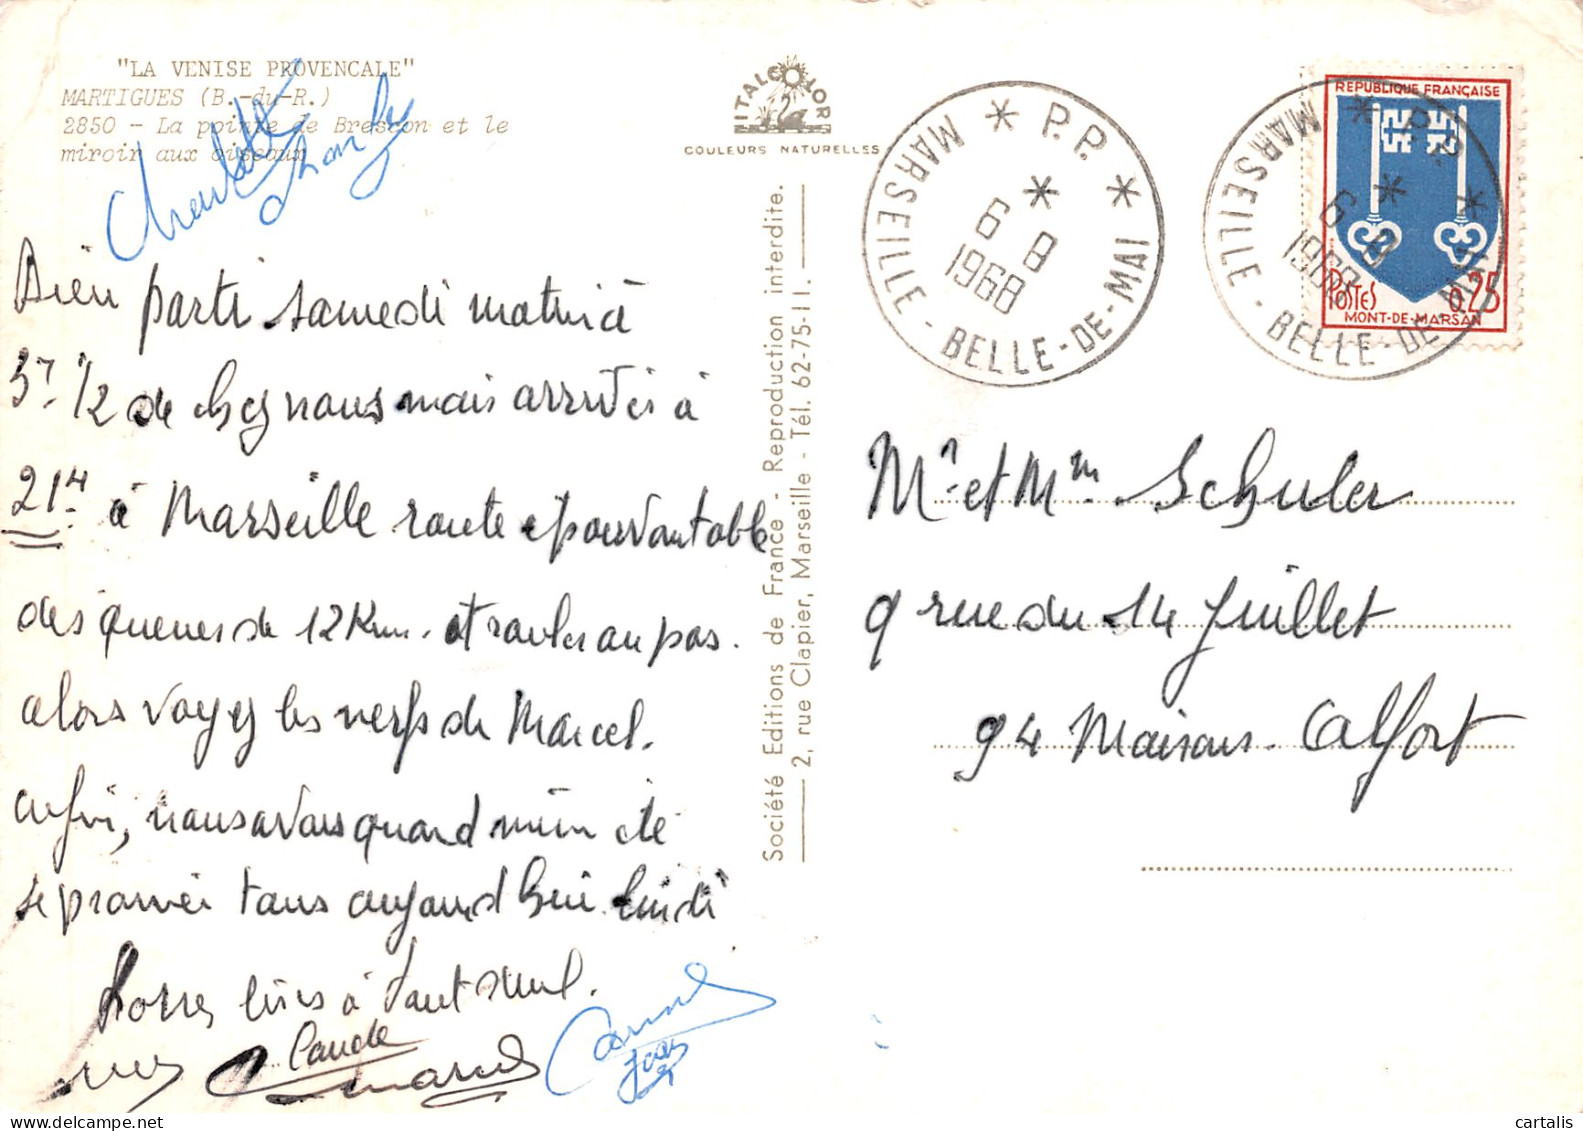 "LA VENISE PROVENCALE"
MARTIGUES (B.-du-R.)
2850 - La pointe de Brescon et le
miroir aux oiseaux
Charlotte
Charly
ITALCOLOR
COULEURS NATURELLES
* P.P. *
MARSEILLE - BELLE-DE-MAI
*
6 8
1968
* P.P. *
MARSEILLE - BELLE-DE-MAI
*
6 8
1968
REPUBLIQUE FRANÇAISE
POSTES 0,25
MONT-DE-MARSAN
Bien parti samedi matin à
3H 1/2 de chez nous mais arrivés à
21H à Marseille route épouvantable
des queues de 12 Km. et rouler au pas.
alors voyez les nerfs de Marcel.
enfin, nous avons quand même été
se tous aujourd'hui lundi
à tout seul.
Claude
Marcel
Société Editions de France - Reproduction interdite.
2, rue Clapier, Marseille - Tél. 62-75-11.
Mr et Mm Schuler
9 rue du 14 Juillet
94 Maisons-Alfort
cartalis